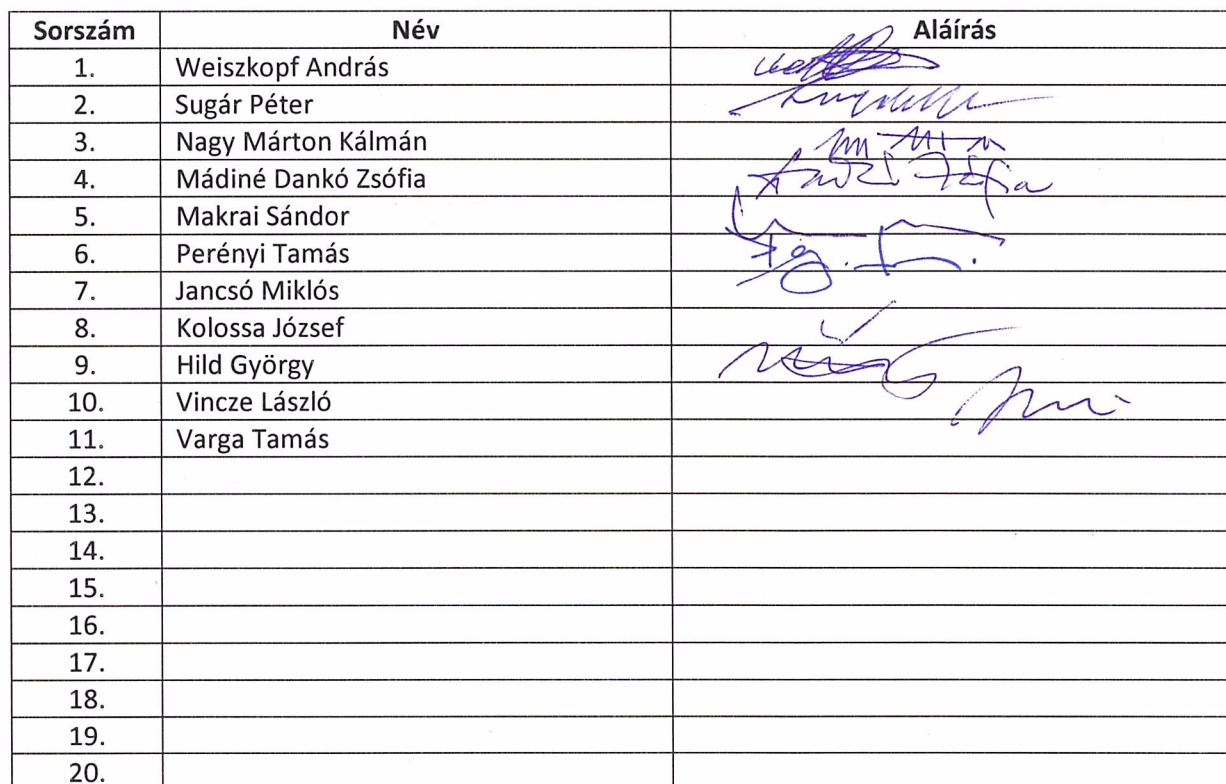 Sorszám Név Aláírás
1. Weiszkopf András
2. Sugár Péter
3. Nagy Márton Kálmán
4. Mádiné Dankó Zsófia
5. Makrai Sándor
6. Perényi Tamás
7. Jancsó Miklós
8. Kolossa József
9. Hild György
10. Vincze László
11. Varga Tamás
12.
13.
14.
15.
16.
17.
18.
19.
20.